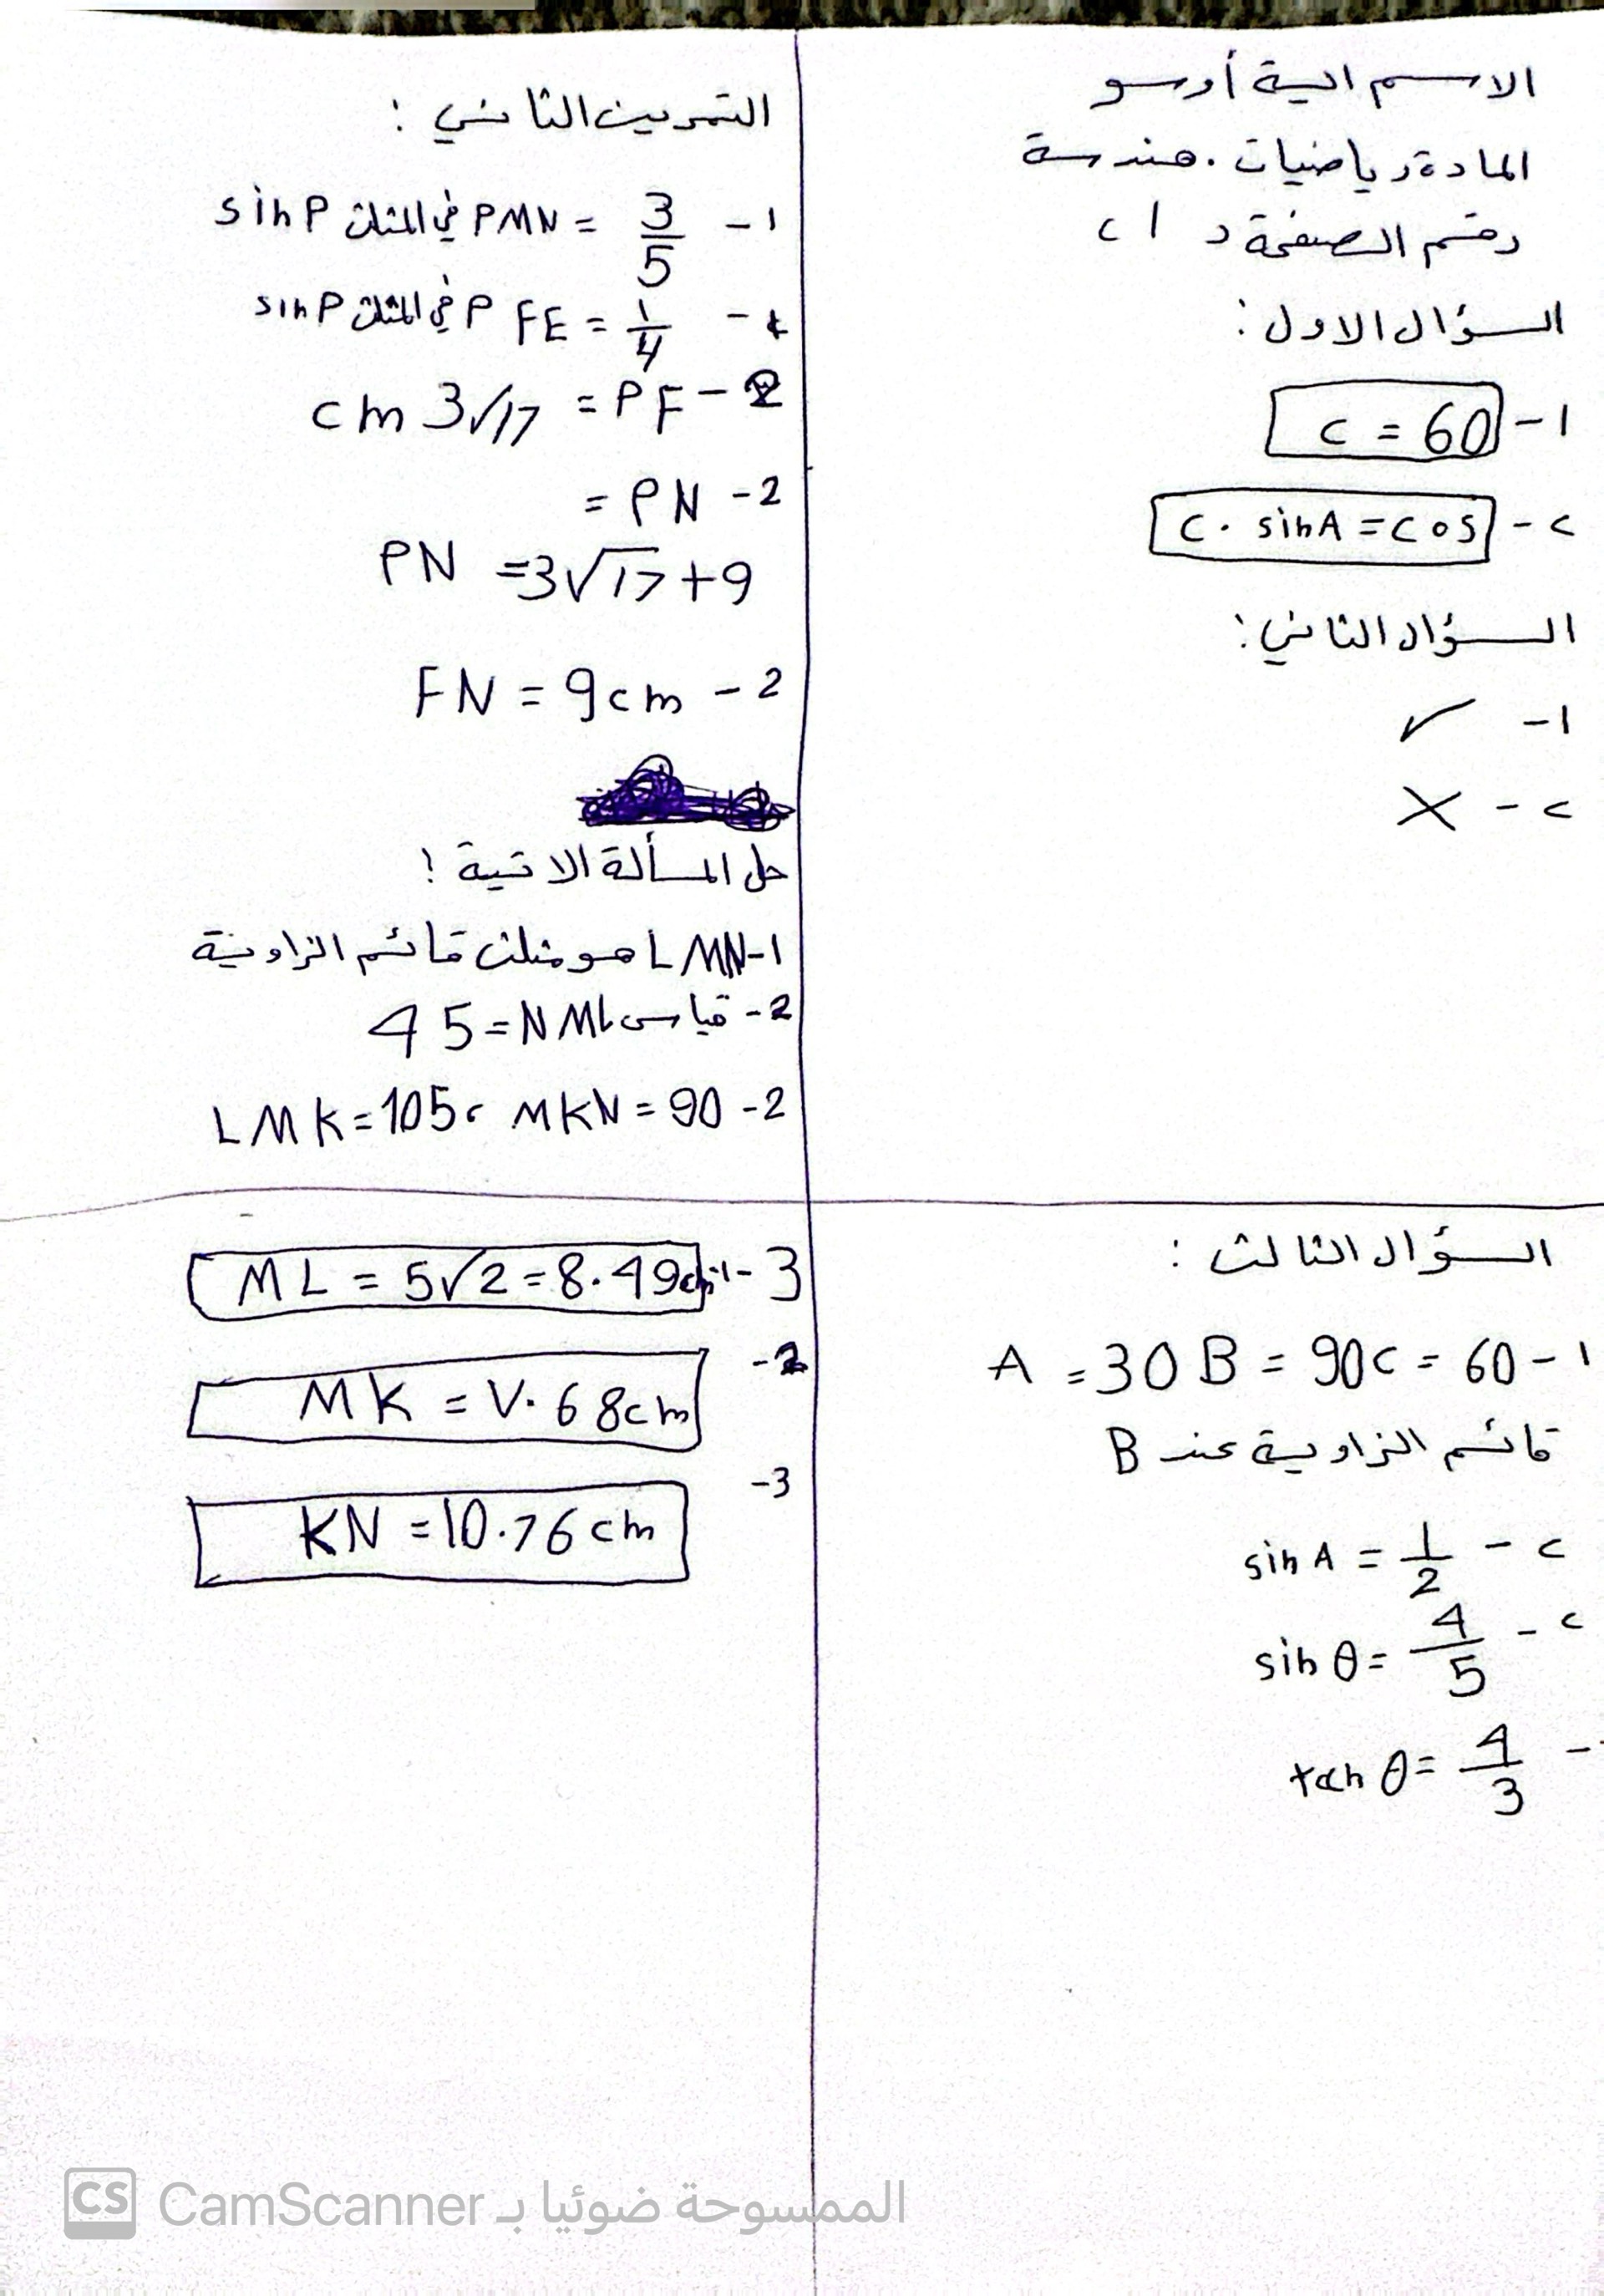 الاسم الية أوسو
المادة رياضيات . هندسة
رقم الصفحة
السؤال الاول :
1- c = 60
2- c . sin A = cos
السؤال الثاني :
1- ✓
2- ✗
السؤال الثالث :
1- A = 30 B = 90 C = 60
قائم الزاوية عند B
2- sin A = 1/2
2- sin θ = 4/5
- tan θ = 4/3
التمرين الثاني :
1- sin P في المثلث PMN = 3/5
- sin P في المثلث P FE = 1/4
2- PF = 3√17 cm
2- PN =
PN = 3√17 + 9
2- FN = 9cm
حل المسألة الاتية !
1- LMN هو مثلث قائم الزاوية
2- قياس NML = 45
2- MKN = 90 ، LMK = 105
3- ML = 5√2 = 8.49cm
2- MK = V.68cm
3- KN = 10.76cm
CS الممسوحة ضوئيا بـ CamScanner